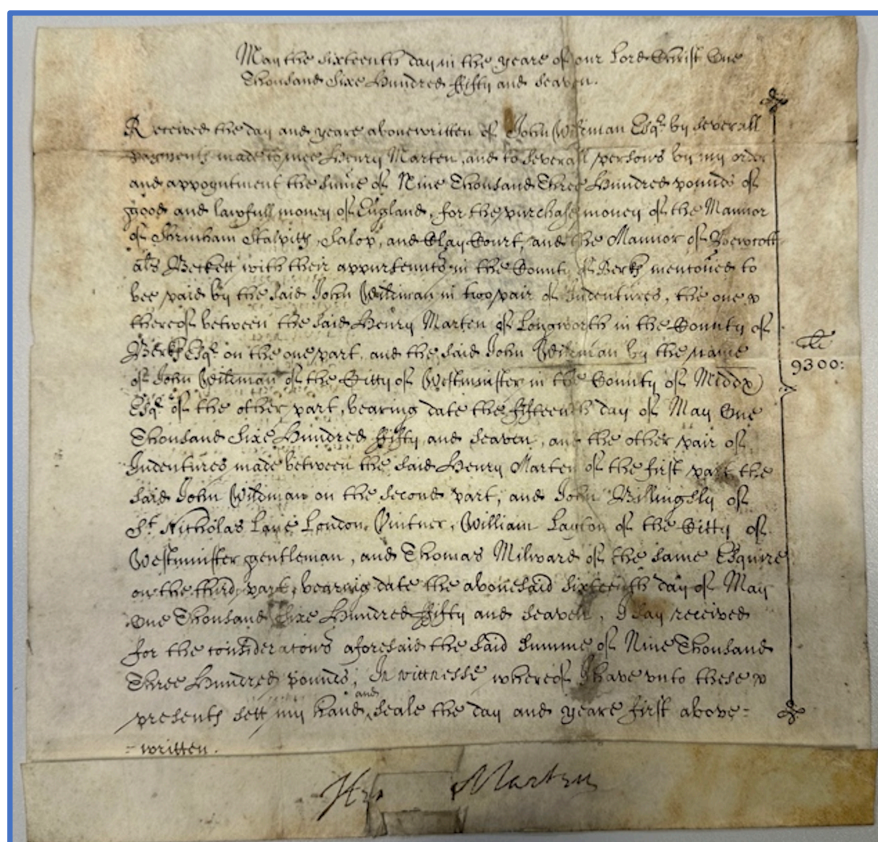 May the Sixteenth day in the yeare of our Lord Christ One
Thousand Sixe Hundred ffifty and Seaven.
Received the day and yeare abovewritten of John Wildman Esqr by severall
payments made to mee Henry Marten, and to severall persons by my order
and appoyntment the summe of Nine Thousand Three Hundred pounds of
good and lawfull money of England, for the purchase money of the Mannor
of Shrinham Stalpitts, Salop, and Clay Court, and the Mannor of
als Beckett with their appurtenncs in the County of Berks mentoned to
bee paid by the said John Wildman in two pair of Indentures, the one
thereof between the said Henry Marten of Longworth in the County of
Berks Esqr on the one part, and the said John Wildman by the name
of John Wildman of the Citty of Westminster in the County of Middx
Esqr of the other part, bearing date the ffifteenth day of May One
Thousand Sixe Hundred ffifty and Seaven, and the other pair of
Indentures made between the said Henry Marten of the first part the
said John Wildman on the second part, and John Billingsly of
St. Nicholas Lane London Vintner, William Layton of the Citty of
Westminster gentleman, and Thomas Milward of the same Esquire
on the third part, bearing date the abovesaid sixteenth day of May
One Thousand Sixe Hundred ffifty and Seaven, I say received
for the consideracons aforesaid the said summe of Nine Thousand
Three Hundred pounds, In wittnesse whereof I have unto these
presents sett my hand and seale the day and yeare first above=
=written.
9300:
Hen Marten